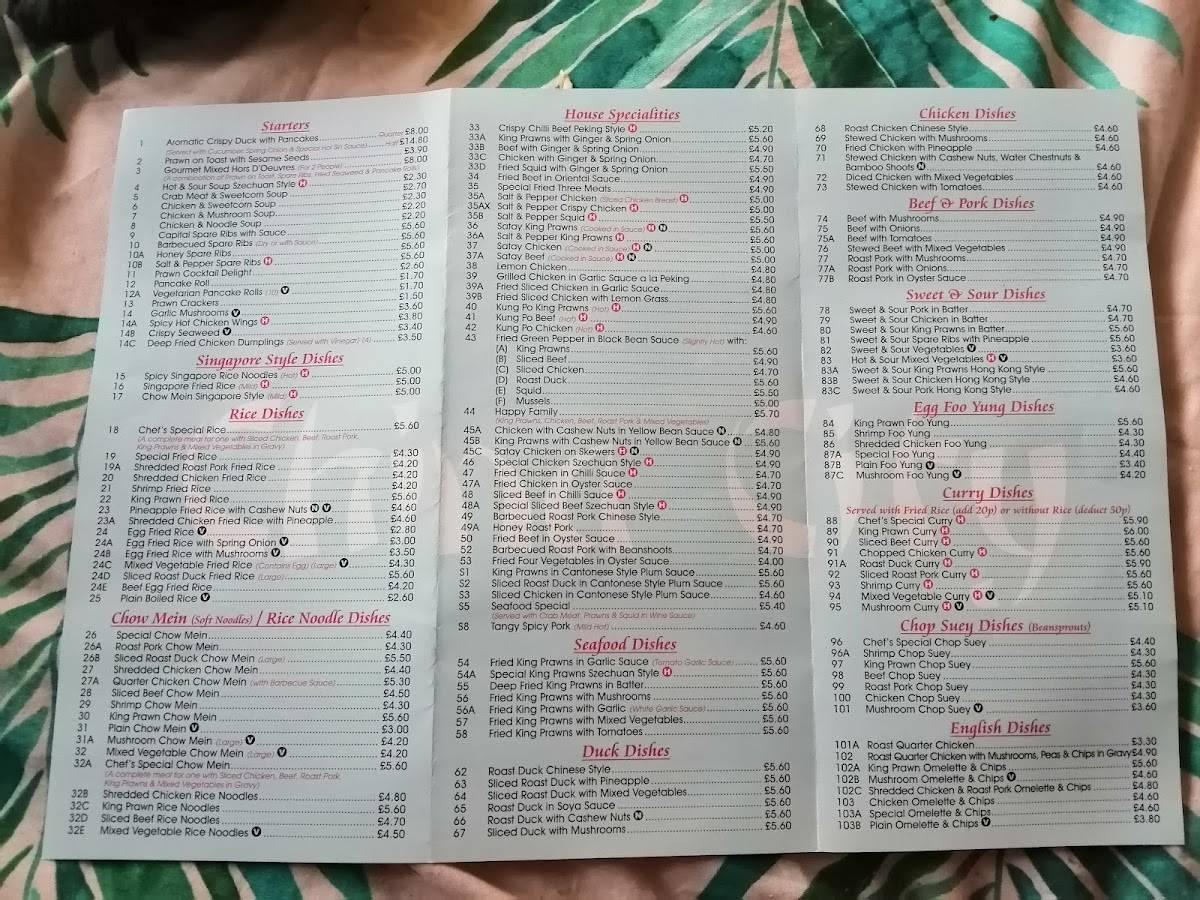 Starters
1 Aromatic Crispy Duck with Pancakes Quarter £8.00
(Served with Cucumber, Spring Onion & Special Hoi Sin Sauce) Half £14.80
2 Prawn on Toast with Sesame Seeds £3.90
3 Gourmet Mixed Hors D'Oeuvres (For 2 People) £8.00
(A combination of Prawn on Toast, Spare Ribs, Fried Seaweed & Pancake Rolls)
4 Hot & Sour Soup Szechuan Style H £2.30
5 Crab Meat & Sweetcorn Soup £2.70
6 Chicken & Sweetcorn Soup £2.30
7 Chicken & Mushroom Soup £2.20
8 Chicken & Noodle Soup £2.20
9 Capital Spare Ribs with Sauce £5.60
10 Barbecued Spare Ribs (Dry or with Sauce) £5.60
10A Honey Spare Ribs £5.60
10B Salt & Pepper Spare Ribs H £5.60
11 Prawn Cocktail Delight £2.60
12 Pancake Roll £1.70
12A Vegetarian Pancake Rolls (10) V £1.70
13 Prawn Crackers £1.50
14 Garlic Mushrooms V £3.60
14A Spicy Hot Chicken Wings H £3.80
14B Crispy Seaweed V £3.40
14C Deep Fried Chicken Dumplings (Served with Vinegar) (4) £3.50
Singapore Style Dishes
15 Spicy Singapore Rice Noodles (Hot) H £5.00
16 Singapore Fried Rice (Mild) H £5.00
17 Chow Mein Singapore Style (Mild) H £5.00
Rice Dishes
18 Chef's Special Rice £5.60
(A complete meal for one with Sliced Chicken, Beef, Roast Pork,
King Prawns & Mixed Vegetables in Gravy)
19 Special Fried Rice £4.30
19A Shredded Roast Pork Fried Rice £4.20
20 Shredded Chicken Fried Rice £4.20
21 Shrimp Fried Rice £4.20
22 King Prawn Fried Rice £5.60
23 Pineapple Fried Rice with Cashew Nuts N V £4.60
23A Shredded Chicken Fried Rice with Pineapple £4.60
24 Egg Fried Rice V £2.80
24A Egg Fried Rice with Spring Onion V £3.60
24B Egg Fried Rice with Mushrooms V £3.50
24C Mixed Vegetable Fried Rice (Contains Egg) (Large) V £4.30
24D Sliced Roast Duck Fried Rice (Large) £5.60
24E Beef Egg Fried Rice £4.20
25 Plain Boiled Rice V £2.60
Chow Mein (Soft Noodles) / Rice Noodle Dishes
26 Special Chow Mein £4.40
26A Roast Pork Chow Mein £4.30
26B Sliced Roast Duck Chow Mein (Large) £5.50
27 Shredded Chicken Chow Mein £4.40
27A Quarter Chicken Chow Mein (with Barbecue Sauce) £5.30
28 Sliced Beef Chow Mein £4.50
29 Shrimp Chow Mein £4.30
30 King Prawn Chow Mein £5.60
31 Plain Chow Mein V £3.00
31A Mushroom Chow Mein (Large) V £4.20
32 Mixed Vegetable Chow Mein (Large) V £4.20
32A Chef's Special Chow Mein £5.60
(A complete meal for one with Sliced Chicken, Beef, Roast Pork,
King Prawns & Mixed Vegetables in Gravy)
32B Shredded Chicken Rice Noodles £4.80
32C King Prawn Rice Noodles £5.60
32D Sliced Beef Rice Noodles £4.70
32E Mixed Vegetable Rice Noodles V £4.50
House Specialities
33 Crispy Chilli Beef Peking Style H £5.20
33A King Prawns with Ginger & Spring Onion £5.60
33B Beef with Ginger & Spring Onion £4.90
33C Chicken with Ginger & Spring Onion £4.70
33D Fried Squid with Ginger & Spring Onion £5.50
34 Fried Beef in Oriental Sauce £4.90
35 Special Fried Three Meats £4.90
35A Salt & Pepper Chicken (Sliced Chicken Breast) H £5.00
35AX Salt & Pepper Crispy Chicken H £5.00
35B Salt & Pepper Squid H £5.50
36 Satay King Prawns (Cooked in Sauce) H N £5.60
36A Salt & Pepper King Prawns H £5.60
37 Satay Chicken (Cooked in Sauce) H N £5.00
37A Satay Beef (Cooked in Sauce) H N £5.00
38 Lemon Chicken £4.80
39 Grilled Chicken in Garlic Sauce a la Peking £4.80
39A Fried Sliced Chicken in Garlic Sauce £4.80
39B Fried Sliced Chicken with Lemon Grass £4.80
40 Kung Po King Prawns (Hot) H £5.60
41 Kung Po Beef (Hot) H £4.90
42 Kung Po Chicken (Hot) H £4.60
43 Fried Green Pepper in Black Bean Sauce (Slightly Hot) with:
(A) King Prawns £5.60
(B) Sliced Beef £4.90
(C) Sliced Chicken £4.70
(D) Roast Duck £5.60
(E) Squid £5.50
(F) Mussels £5.00
44 Happy Family £5.70
(King Prawns, Chicken, Beef, Roast Pork & Mixed Vegetables)
45A Chicken with Cashew Nuts in Yellow Bean Sauce N £4.80
45B King Prawns with Cashew Nuts in Yellow Bean Sauce N £5.60
45C Satay Chicken on Skewers H N £4.90
46 Special Chicken Szechuan Style H £4.90
47 Fried Chicken in Chilli Sauce H £4.70
47A Fried Chicken in Oyster Sauce £4.70
48 Sliced Beef in Chilli Sauce H £4.90
48A Special Sliced Beef Szechuan Style H £4.90
49 Barbecued Roast Pork Chinese Style £4.70
49A Honey Roast Pork £4.70
50 Fried Beef in Oyster Sauce £4.90
52 Barbecued Roast Pork with Beanshoots £4.70
53 Fried Four Vegetables in Oyster Sauce £4.00
S1 King Prawns in Cantonese Style Plum Sauce £5.60
S2 Sliced Roast Duck in Cantonese Style Plum Sauce £5.60
S3 Sliced Chicken in Cantonese Style Plum Sauce £4.60
S5 Seafood Special £5.40
(Served with Crab Meat, Prawns & Squid in Wine Sauce)
S8 Tangy Spicy Pork (Mild Hot) £4.60
Seafood Dishes
54 Fried King Prawns in Garlic Sauce (Tomato Garlic Sauce) £5.60
54A Special King Prawns Szechuan Style H £5.60
55 Deep Fried King Prawns in Batter £5.60
56 Fried King Prawns with Mushrooms £5.60
56A Fried King Prawns with Garlic (White Garlic Sauce) £5.60
57 Fried King Prawns with Mixed Vegetables £5.60
58 Fried King Prawns with Tomatoes £5.60
Duck Dishes
62 Roast Duck Chinese Style £5.60
63 Sliced Roast Duck with Pineapple £5.60
64 Sliced Roast Duck with Mixed Vegetables £5.60
65 Roast Duck in Soya Sauce £5.60
66 Roast Duck with Cashew Nuts N £5.60
67 Sliced Duck with Mushrooms £5.60
Chicken Dishes
68 Roast Chicken Chinese Style £4.60
69 Stewed Chicken with Mushrooms £4.60
70 Fried Chicken with Pineapple £4.60
71 Stewed Chicken with Cashew Nuts, Water Chestnuts &
Bamboo Shoots N £4.60
72 Diced Chicken with Mixed Vegetables £4.60
73 Stewed Chicken with Tomatoes £4.60
Beef & Pork Dishes
74 Beef with Mushrooms £4.90
75 Beef with Onions £4.90
75A Beef with Tomatoes £4.90
76 Stewed Beef with Mixed Vegetables £4.90
77 Roast Pork with Mushrooms £4.70
77A Roast Pork with Onions £4.70
77B Roast Pork in Oyster Sauce £4.70
Sweet & Sour Dishes
78 Sweet & Sour Pork in Batter £4.70
79 Sweet & Sour Chicken in Batter £4.70
80 Sweet & Sour King Prawns in Batter £5.60
81 Sweet & Sour Spare Ribs with Pineapple £5.60
82 Sweet & Sour Vegetables V £3.60
83 Hot & Sour Mixed Vegetables H V £3.60
83A Sweet & Sour King Prawns Hong Kong Style £5.60
83B Sweet & Sour Chicken Hong Kong Style £4.60
83C Sweet & Sour Pork Hong Kong Style £4.60
Egg Foo Yung Dishes
84 King Prawn Foo Yung £5.60
85 Shrimp Foo Yung £4.30
86 Shredded Chicken Foo Yung £4.30
87A Special Foo Yung £4.40
87B Plain Foo Yung V £3.40
87C Mushroom Foo Yung V £4.20
Curry Dishes
Served with Fried Rice (add 20p) or without Rice (deduct 50p)
88 Chef's Special Curry H £5.90
89 King Prawn Curry H £6.00
90 Sliced Beef Curry H £5.60
91 Chopped Chicken Curry H £5.60
91A Roast Duck Curry H £5.90
92 Sliced Roast Pork Curry H £5.60
93 Shrimp Curry H £5.60
94 Mixed Vegetable Curry H V £5.10
95 Mushroom Curry H V £5.10
Chop Suey Dishes (Beansprouts)
96 Chef's Special Chop Suey £4.40
96A Shrimp Chop Suey £4.30
97 King Prawn Chop Suey £5.60
98 Beef Chop Suey £4.30
99 Roast Pork Chop Suey £4.30
100 Chicken Chop Suey £4.30
101 Mushroom Chop Suey V £3.60
English Dishes
101A Roast Quarter Chicken £3.30
102 Roast Quarter Chicken with Mushrooms, Peas & Chips in Gravy £4.90
102A King Prawn Omelette & Chips £5.60
102B Mushroom Omelette & Chips V £4.60
102C Shredded Chicken & Roast Pork Omelette & Chips £4.80
103 Chicken Omelette & Chips £4.60
103A Special Omelette & Chips £4.60
103B Plain Omelette & Chips V £3.80